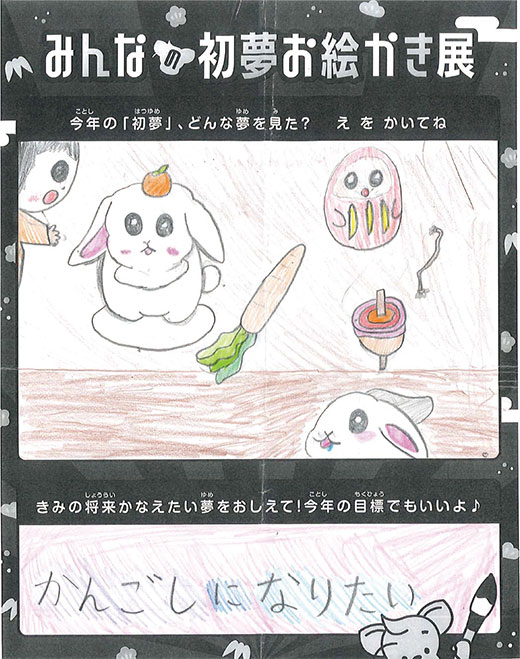 みんなの初夢お絵かき展
今年の「初夢」、どんな夢を見た？ えをかいてね
きみの将来かなえたい夢をおしえて！今年の目標でもいいよ♪
かんごしになりたい